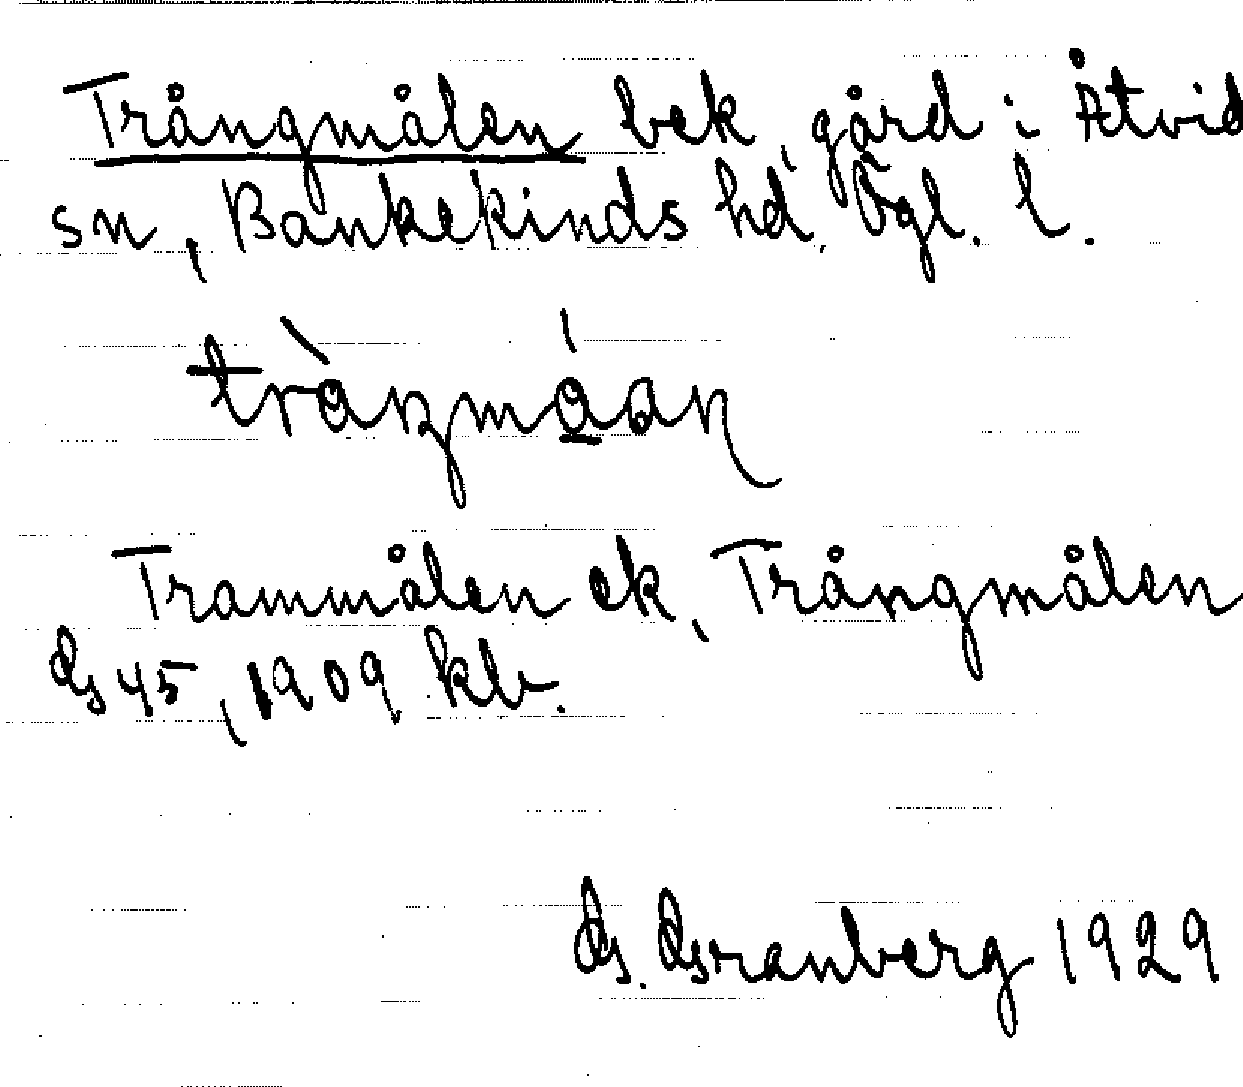 Trångmålen bek, gård i Åtvid
sn, Bankekinds hd, Ögl. l.
Trammålen ek, Trångmålen
Gs 45, 1909 kb.
G. Granberg 1929